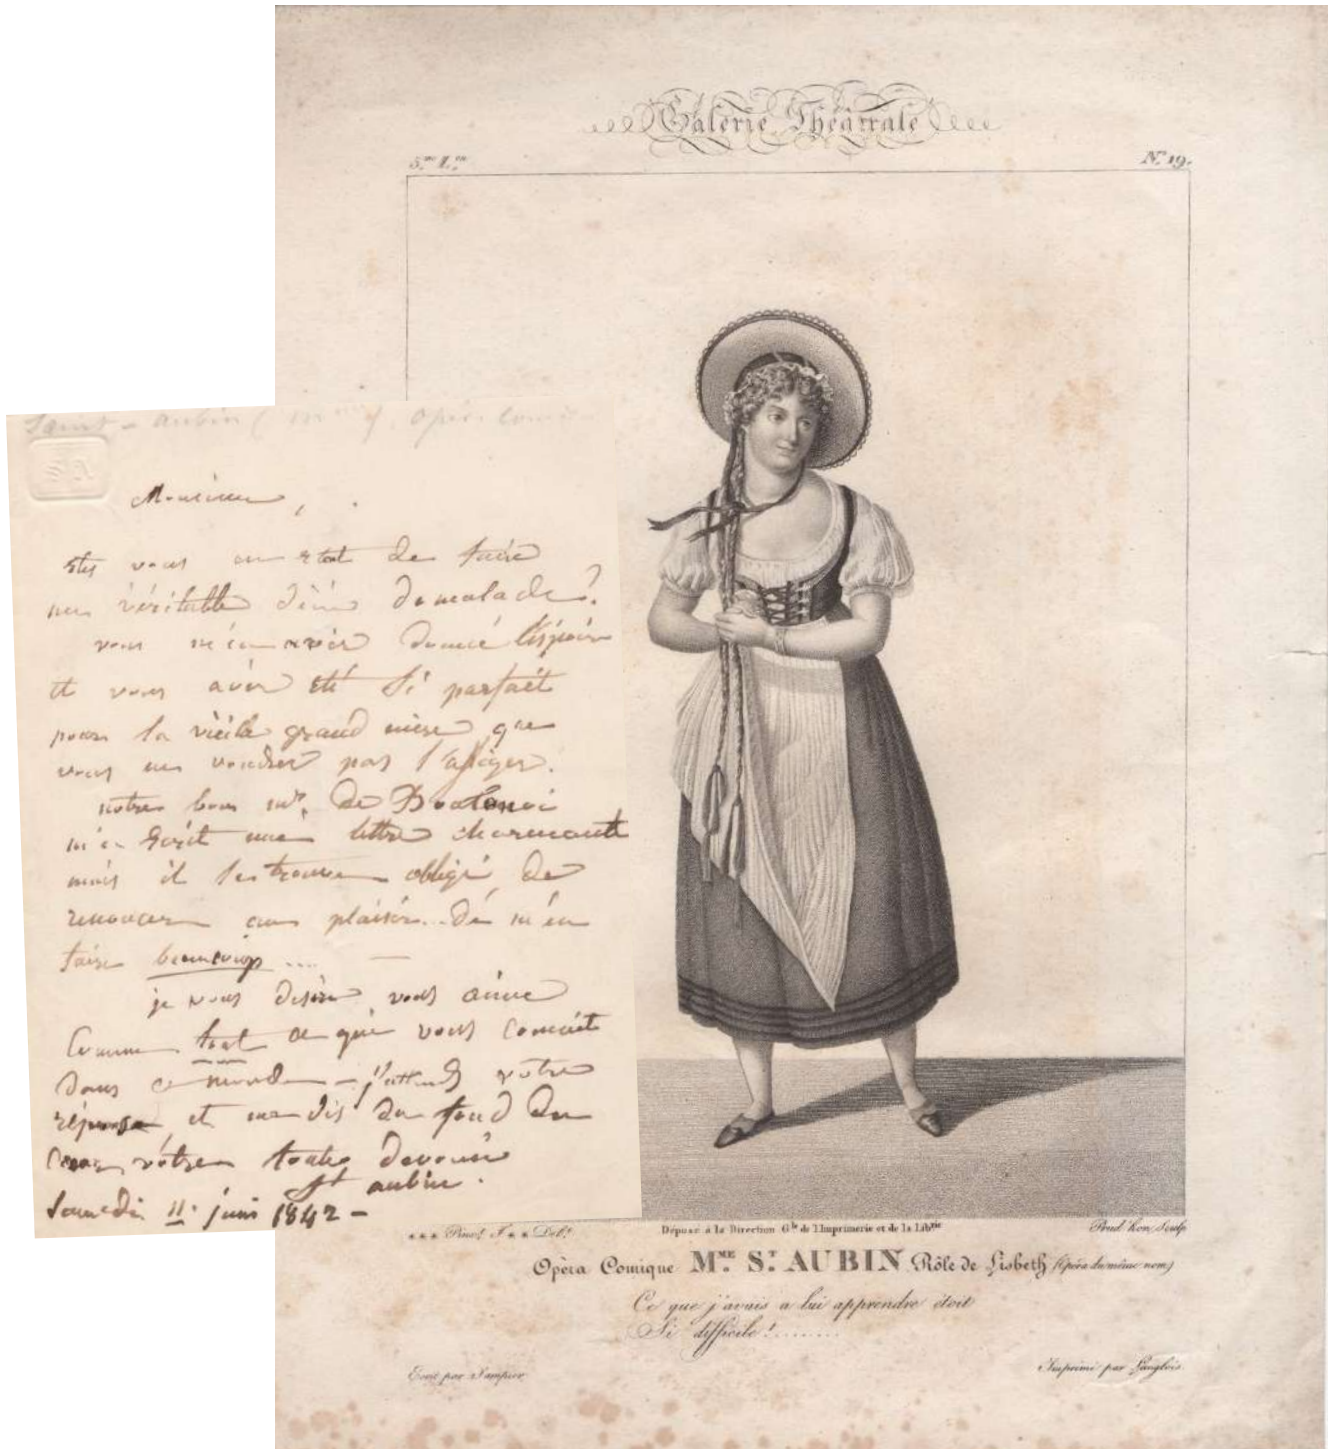 Galerie Théâtrale
5.me L.on
N.o 19.
Saint-aubin (mme) opéra comi
Monsieur,
etes vous en etat de faire
un véritable diné de malade?
vous m'en aviéz donné l'éspoir
et vous avéz eté si parfait
pour la vieille grand mère que
vous ne voudrez pas l'afliger.
notre bon mr. de
m'a écrit une lettre charmante
mais il se trouve obligé de
renoncer au plaisir.. de m'en
faire beaucoup .... —
je vous desire, vous aime
Comme tout ce qui vous connait
dans ce monde - j'attends votre
réponse et me dis du fond du
Coeur votre toute dévouée
St aubin.
Samedi 11. juin 1842 -
*** Pinx.t J** Del.t
Déposé à la Direction G.le de l'Imprimerie et de la Lib.rie
Prud'hon Sculp
Opèra Comique M.ME S.T AUBIN Rôle de Lisbeth (Opéra du même nom)
Ce que j'avais a lui apprendre étoit
Si difficile!........
Ecrit par Sampier
Imprimé par Langlois.